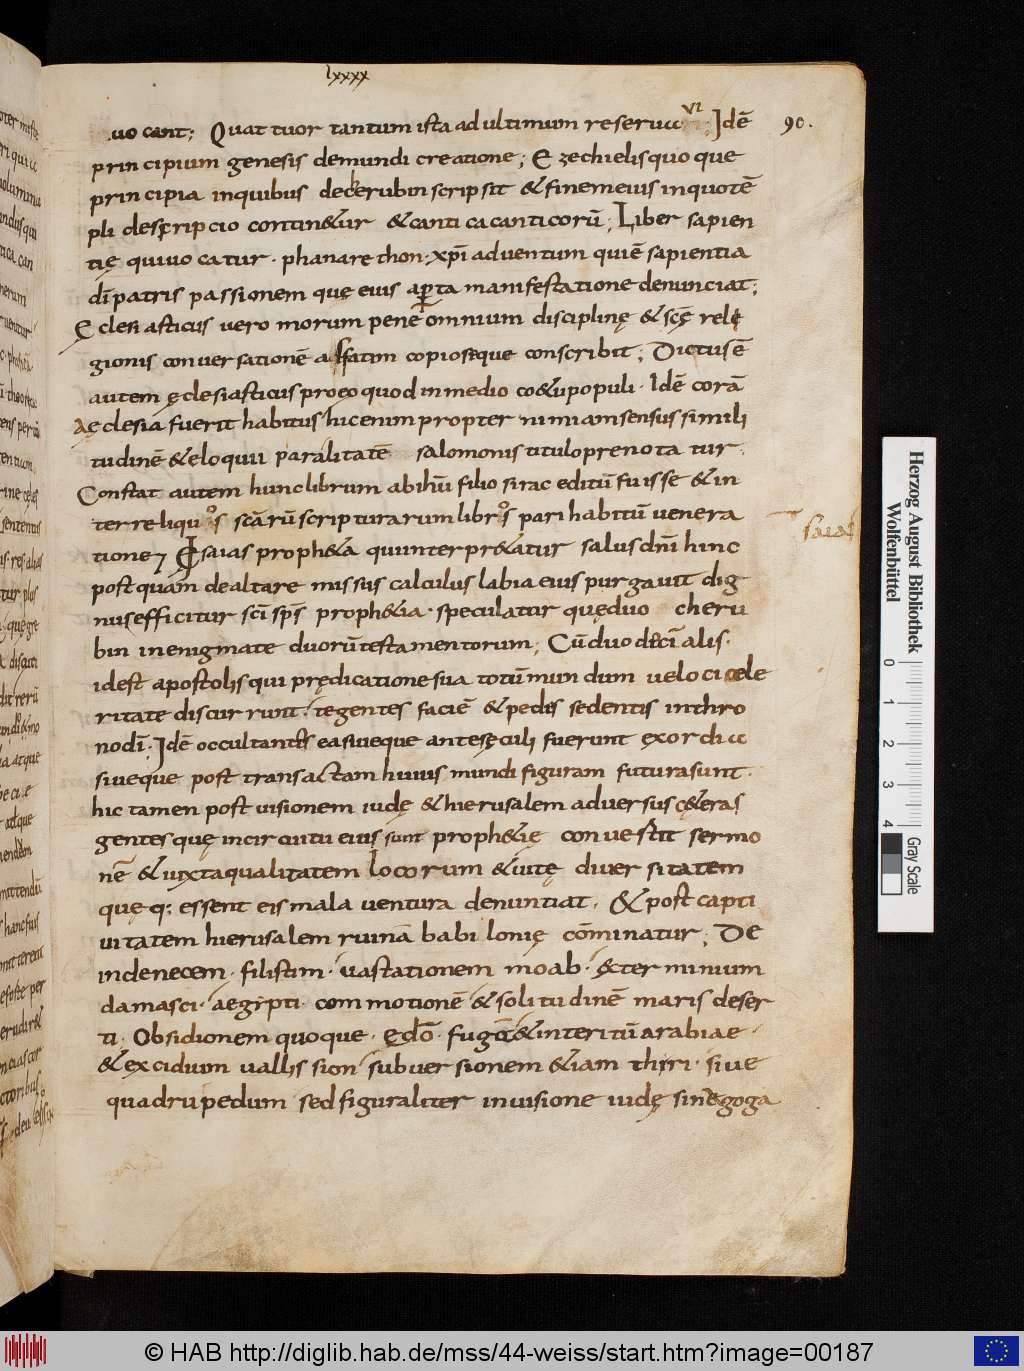 lxxxx
90.
uocant; Quattuor tantum ista ad ultimum reseruauit; Idē
principium genesis demundi creatione; Ezechielisquoque
principia inquibus decherubin scripsit & finemeius inquotē
pli descripcio contin&ur &canticacanticorū; Liber sapien
tię quiuocatur· phanarethon· xp̄i aduentum quiē sapientia
dī patris passionem quę eius aperta manifestatione denunciat;
Ęclesiasticus vero morum pene omnium disciplinę & scę relę
gionis conuersationē affatim copioseque conscribit; Dictusē
autem ęclesiasticus proeo quod inmedio co&upopuli· Idē corā
Aęclesia fuerit habitus hicenim propter nimiamsensus simili
tudinē &eloquii paralitatē salomonis tituloprenotatur·
Constat autem hunclibrum abihū filio sirac editū fuisse &in
terreliquos scārū scripturarum libros pari habitū venera
tione; Esaias proph&a quiinterpr&atur salus dn̄i hinc
postquam dealtare missus calculus labia eius purgauit dig
nusefficitur sc̄i sps̄ proph&ia· speculatur quęduo cheru
bin inenigmate duorūtestamentorum; Cūduodeci alis·
idest apostolis qui prędicationesua totūmundum ueloci cele
ritate discurrunt· tegentes faciē &pedes sedentis inthro
nodī· Idē occultantes easiueque antesęculi fuerunt ęxordia
siueque post transactam huius mundi figuram futurasunt·
hic tamen post uisionem iudę &hierusalem aduersus cę&eras
gentes quę incircuitu eius sunt proph&ię conuestit sermo
nē &iuxtaqualitatem locorum &uitę diuersitatem
quę q; essent eis mala uentura denuntiat· &post capti
uitatem hierusalem ruinā babilonię cōminatur; De
indenecem· filistim· uastationem moab· &terminium
damasci· aegipti· commotionē &solitudinē maris deser
ti· Obsidionem quoque· edō· fugā &interitū arabiae·
&excidium uallis sion subuersionem &iam thiri· siue
quadrupedum sed figuraliter inuisione iudę sinagoga
saias
Herzog August Bibliothek
Wolfenbüttel
0
1
2
3
4
Gray Scale
© HAB http://diglib.hab.de/mss/44-weiss/start.htm?image=00187